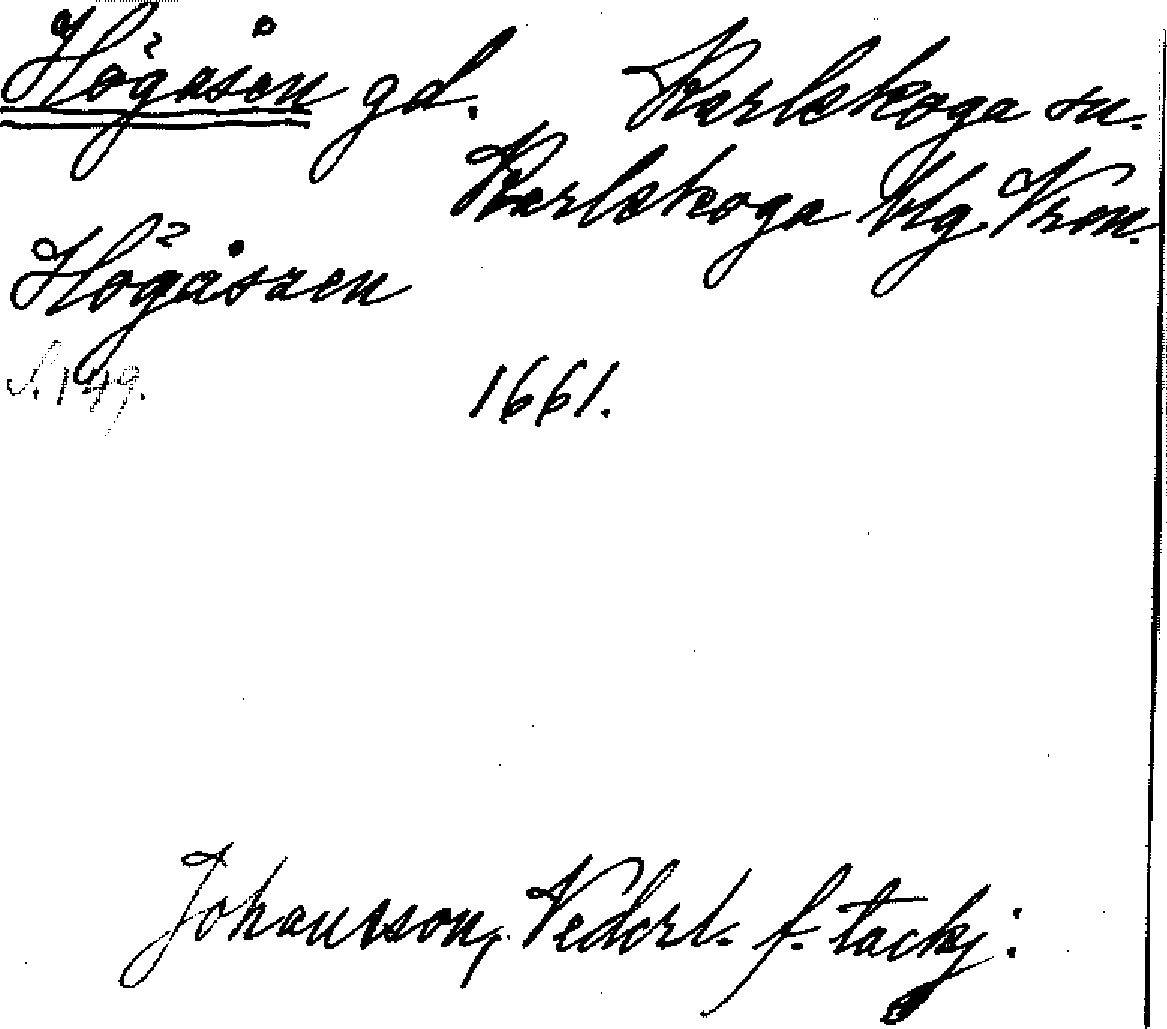 Högåsen gd. Karlskoga sn.
Karlskoga blg. Vrml.
Högåszen
S. 149.
1661.
Johansson, Vederl. f. tackj: